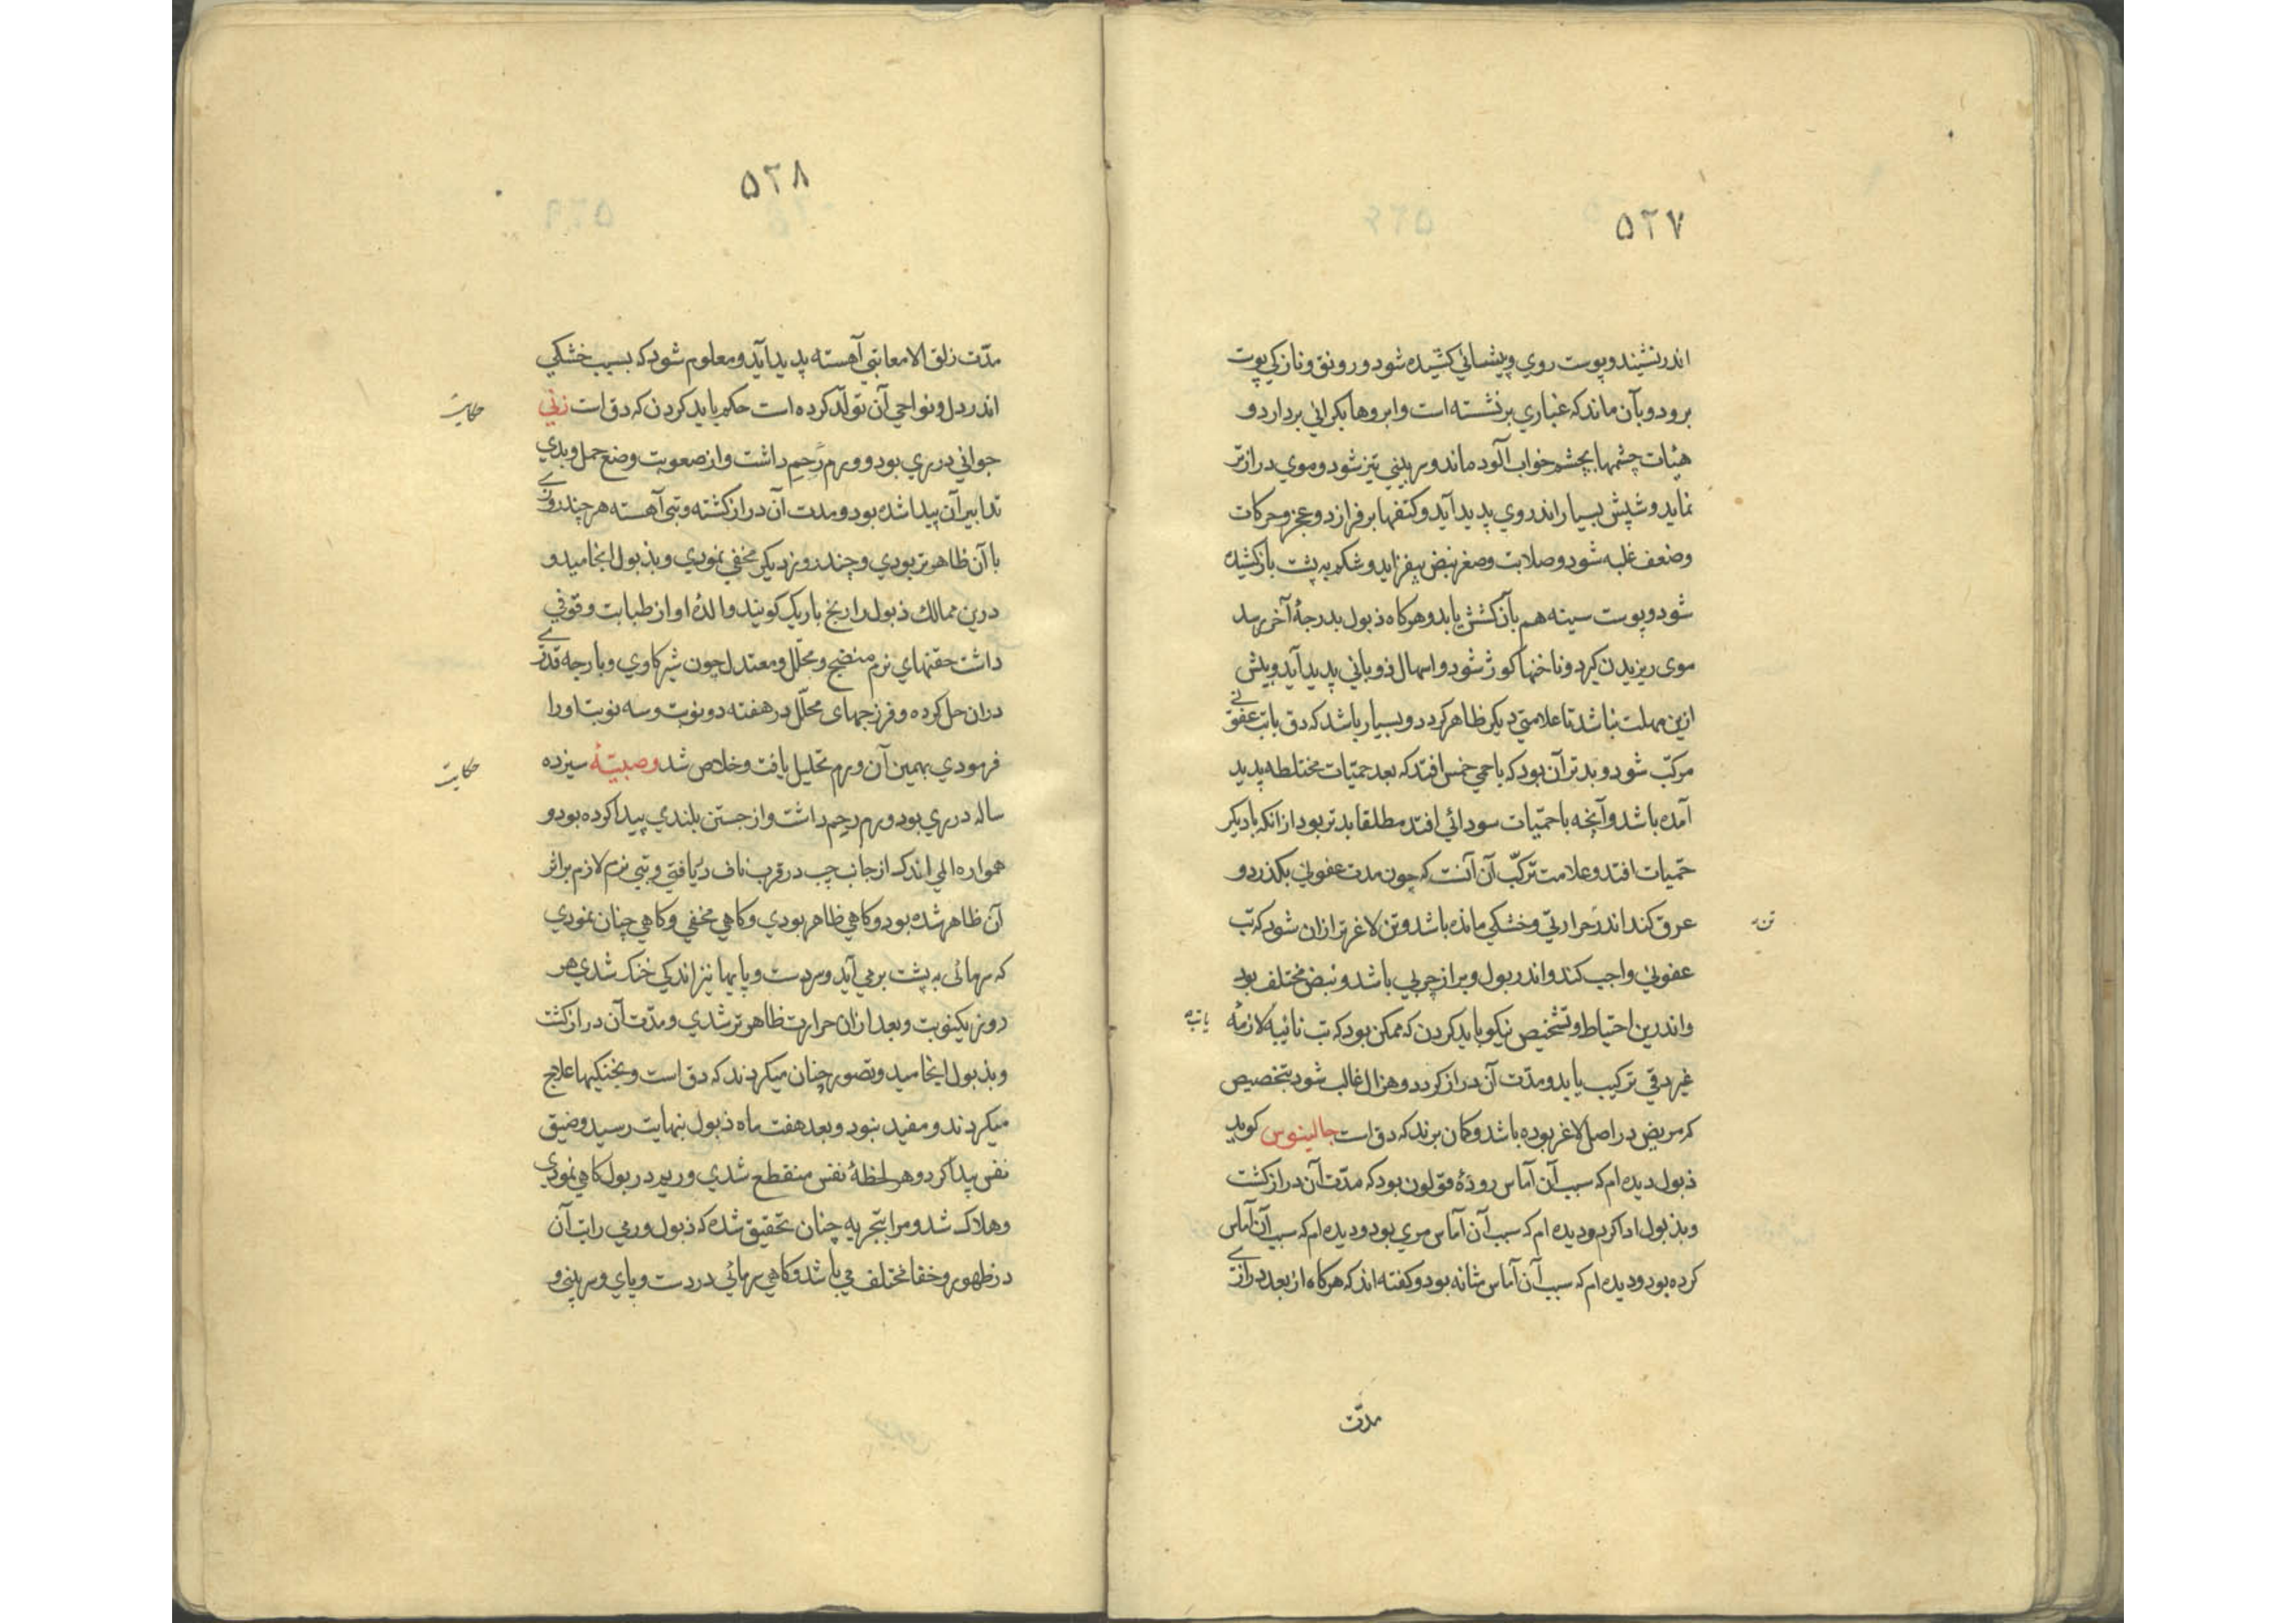 ۵۲۷
اندر نشیند و پوست روي و پیشاني کشیده شود و رونق و نازکي پوت
برود و بآن ماند که غباري برنشسته است و ابروها بکراني بردارد و
هیئات چشمها بچشم خواب آلود ماند و سر بیني تیز شود و موي درازتر
نماید و شپش بسیار اندر وي پدید آید و کتفها برفرازد و عجز و حرکات
وضعف غلبه شود و صلابت و صغر نبض بیفزاید و شکم به پشت بازکشیده
شود و پوست سینه هم بآن کشش یابد و هرکاه ذبول بدرجهٔ آخر رسد
موی ریزیدن کیرد و ناخنها کوژ شود و اسهال ذوباني پدید آید و بیش
ازین مهلت نباشد تا علامتي دیکر ظاهر کردد و بسیار باشد که دق باتب عفوني
مرکّب شود و بدتر آن بود که باحمي خمس افتد که بعد حمّیات مختلطه پدید
آمده باشد و آنچه باحمّیات سودائي افتد مطلقا بدتر بود از انکه بادیکر
حمّیات افتد و علامت ترکّب آن آنست که چون مدت عفوني بکذرد و
عرق کند اندر حرارتي و خشکي مانده باشد و تن لاغرتر ازان شود که تب
عفوني واجب کند و اندر بول و براز چربي باشد و نبض مختلف بود
و اندرین احتیاط و تشخیص نیکو باید کردن که ممکن بود که تب نائبهٔ لازمهٔ
غیر دقي ترکیب یابد و مدّت آن دراز کردد و هزال غالب شود بتخصیص
که مریض در اصل لاغر بوده باشد و کمان برند که دق است جالینوس کوید
ذبول دیده ام که سبب آن آماس رودهٔ قولون بود که مدّت آن دراز کشت
و بذبول ادا کرد و دیده ام که سبب آن آماس مري بود و دیده ام که سبب آن آماس
کرده بود و دیده ام که سبب آن آماس مثانه بود و کفته اند که هرکاه از بعد درازي
مدّت
۵۲۸
مدّت زلق الامعا تبي آهسته پدید آید و معلوم شود که بسبب خشکي
اندر دل و نواحي آن تولّد کرده است حکم باید کردن که دق است زني
حکایت
جواني در ري بود و ورم رحم داشت و از صعوبت وضع حمل و بدي
تدابیر آن پیدا شده بود و مدت آن دراز کشته و تبی آهسته هر چند روزي
با آن ظاهرتر بودي و چند روز دیکر مخفي نمودي و بذبول انجامید و
درین ممالک ذبول را رنج باریک کویند و الدهٔ او از طبابت وقوفي
داشت حقنهاي نرم منضج و محلّل و معتدل چون شیر کاوي و بارجه قدري
دران حل کرده و فرزجهای محلّل در هفته دو نوبت و سه نوبت او را
فرمودي بهمین آن ورم تحلیل یافت و خلاص شد وصبیّهٔ سیزده
حکایت
ساله در ري بود ورم رحم داشت و از جستن بلندي پیدا کرده بود و
همواره المي اندک از جانب چپ در قرب ناف دریافتي و تبي نرم لازم براثر
آن ظاهر شده بود و کاهي ظاهر بودي و کاهي مخفي و کاهي چنان نمودي
که سرمائی به پشت برمي آید و سردست و پایها نیز اندکي خنک شدي هر
روز یکنوبت و بعد ازان حرارت ظاهرتر شدي و مدّت آن دراز کشت
و بذبول انجامید و تصور چنان میکردند که دق است و بخنکیها علاج
میکردند و مفید نبود و بعد هفت ماه ذبول بنهایت رسید و ضیق
نفس پیدا کرد و هر لحظهٔ نفس منقطع شدي و ریم در بول کاهي نمودي
و هلاک شد و مرا بتجربه چنان تحقیق شده که ذبول ورمي را تب آن
در ظهور و خفا مختلف مي باشد و کاهي سرمائي در دست و پاي و سر بیني و